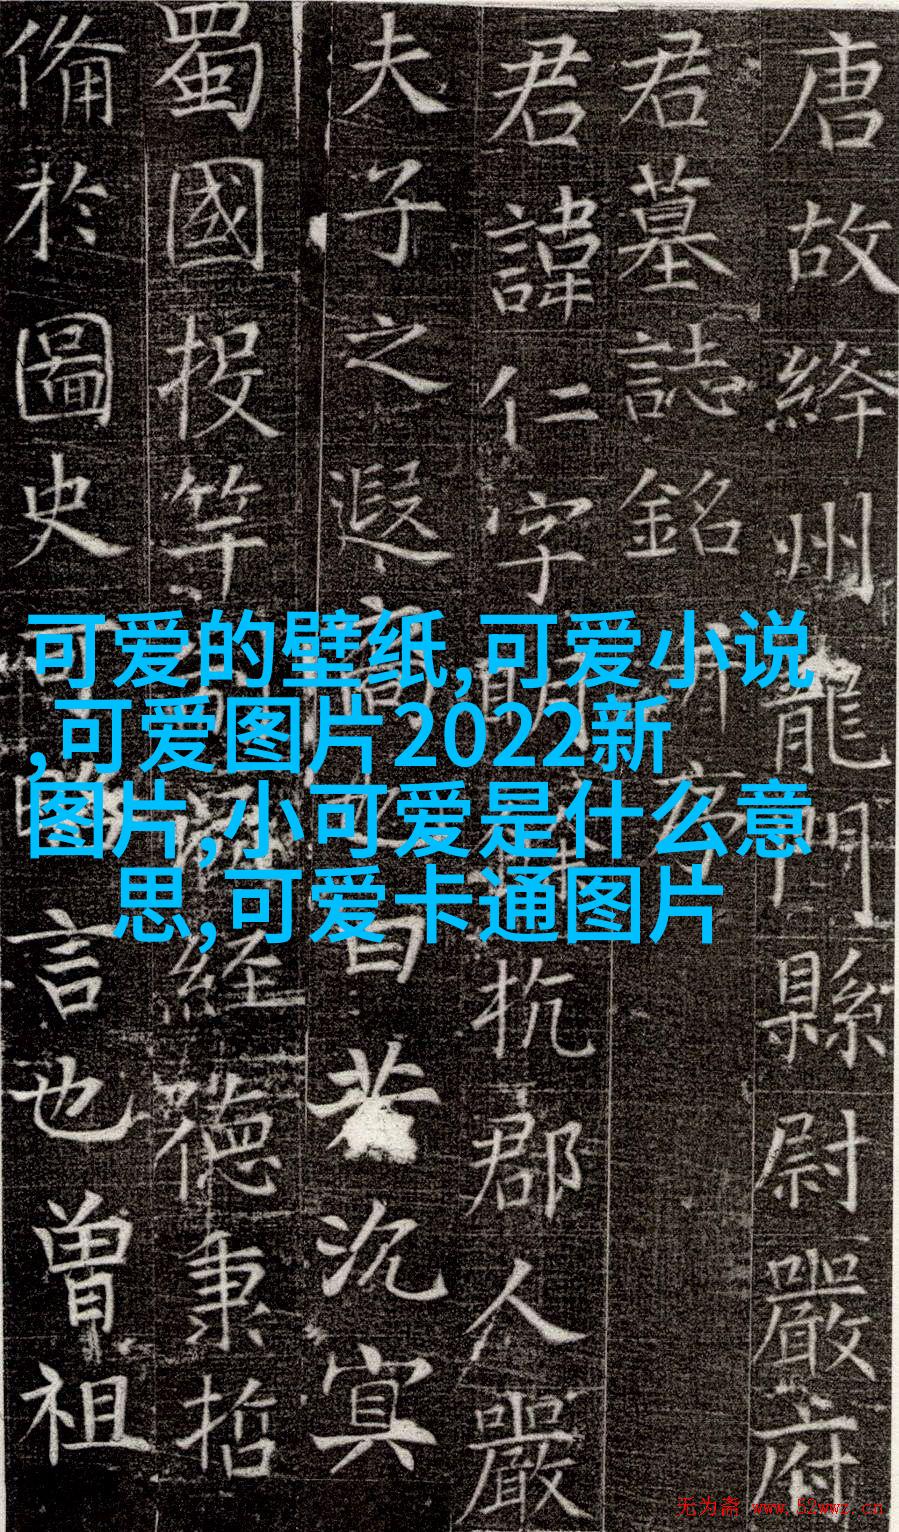 唐故絳州龍門縣尉嚴府
君墓誌銘并序
君諱仁字明杭郡人嚴
夫子之遐裔曰若沉冥
蜀國投竿經德秉哲
備於圖史言也曾祖
可爱的壁纸,可爱小说
,可爱图片2022新
图片,小可爱是什么意
思,可爱卡通图片
无为斋 www.52wwz.cn